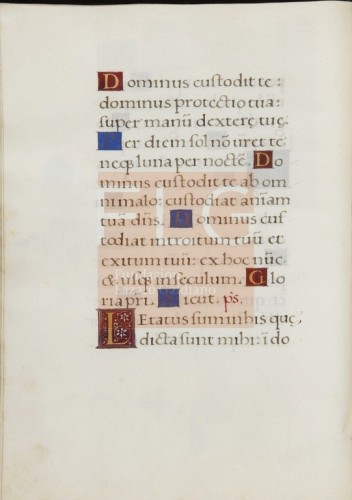 Dominus custodit te:
dominus protectio tua:
super manū dexterę tuę.
Per diem sol nō uret te
neqȝ luna per noctē. Do
minus custodit te ab om
ni malo: custodiat aniam
tuā dn̄s. Dominus cus
todiat introitum tuū et
exitum tuū: ex hoc nūc
& usqȝ in seculum. Glo
ria pri. Sicut. ps.
Letatus sum in his quę
dicta sunt mihi: ī do